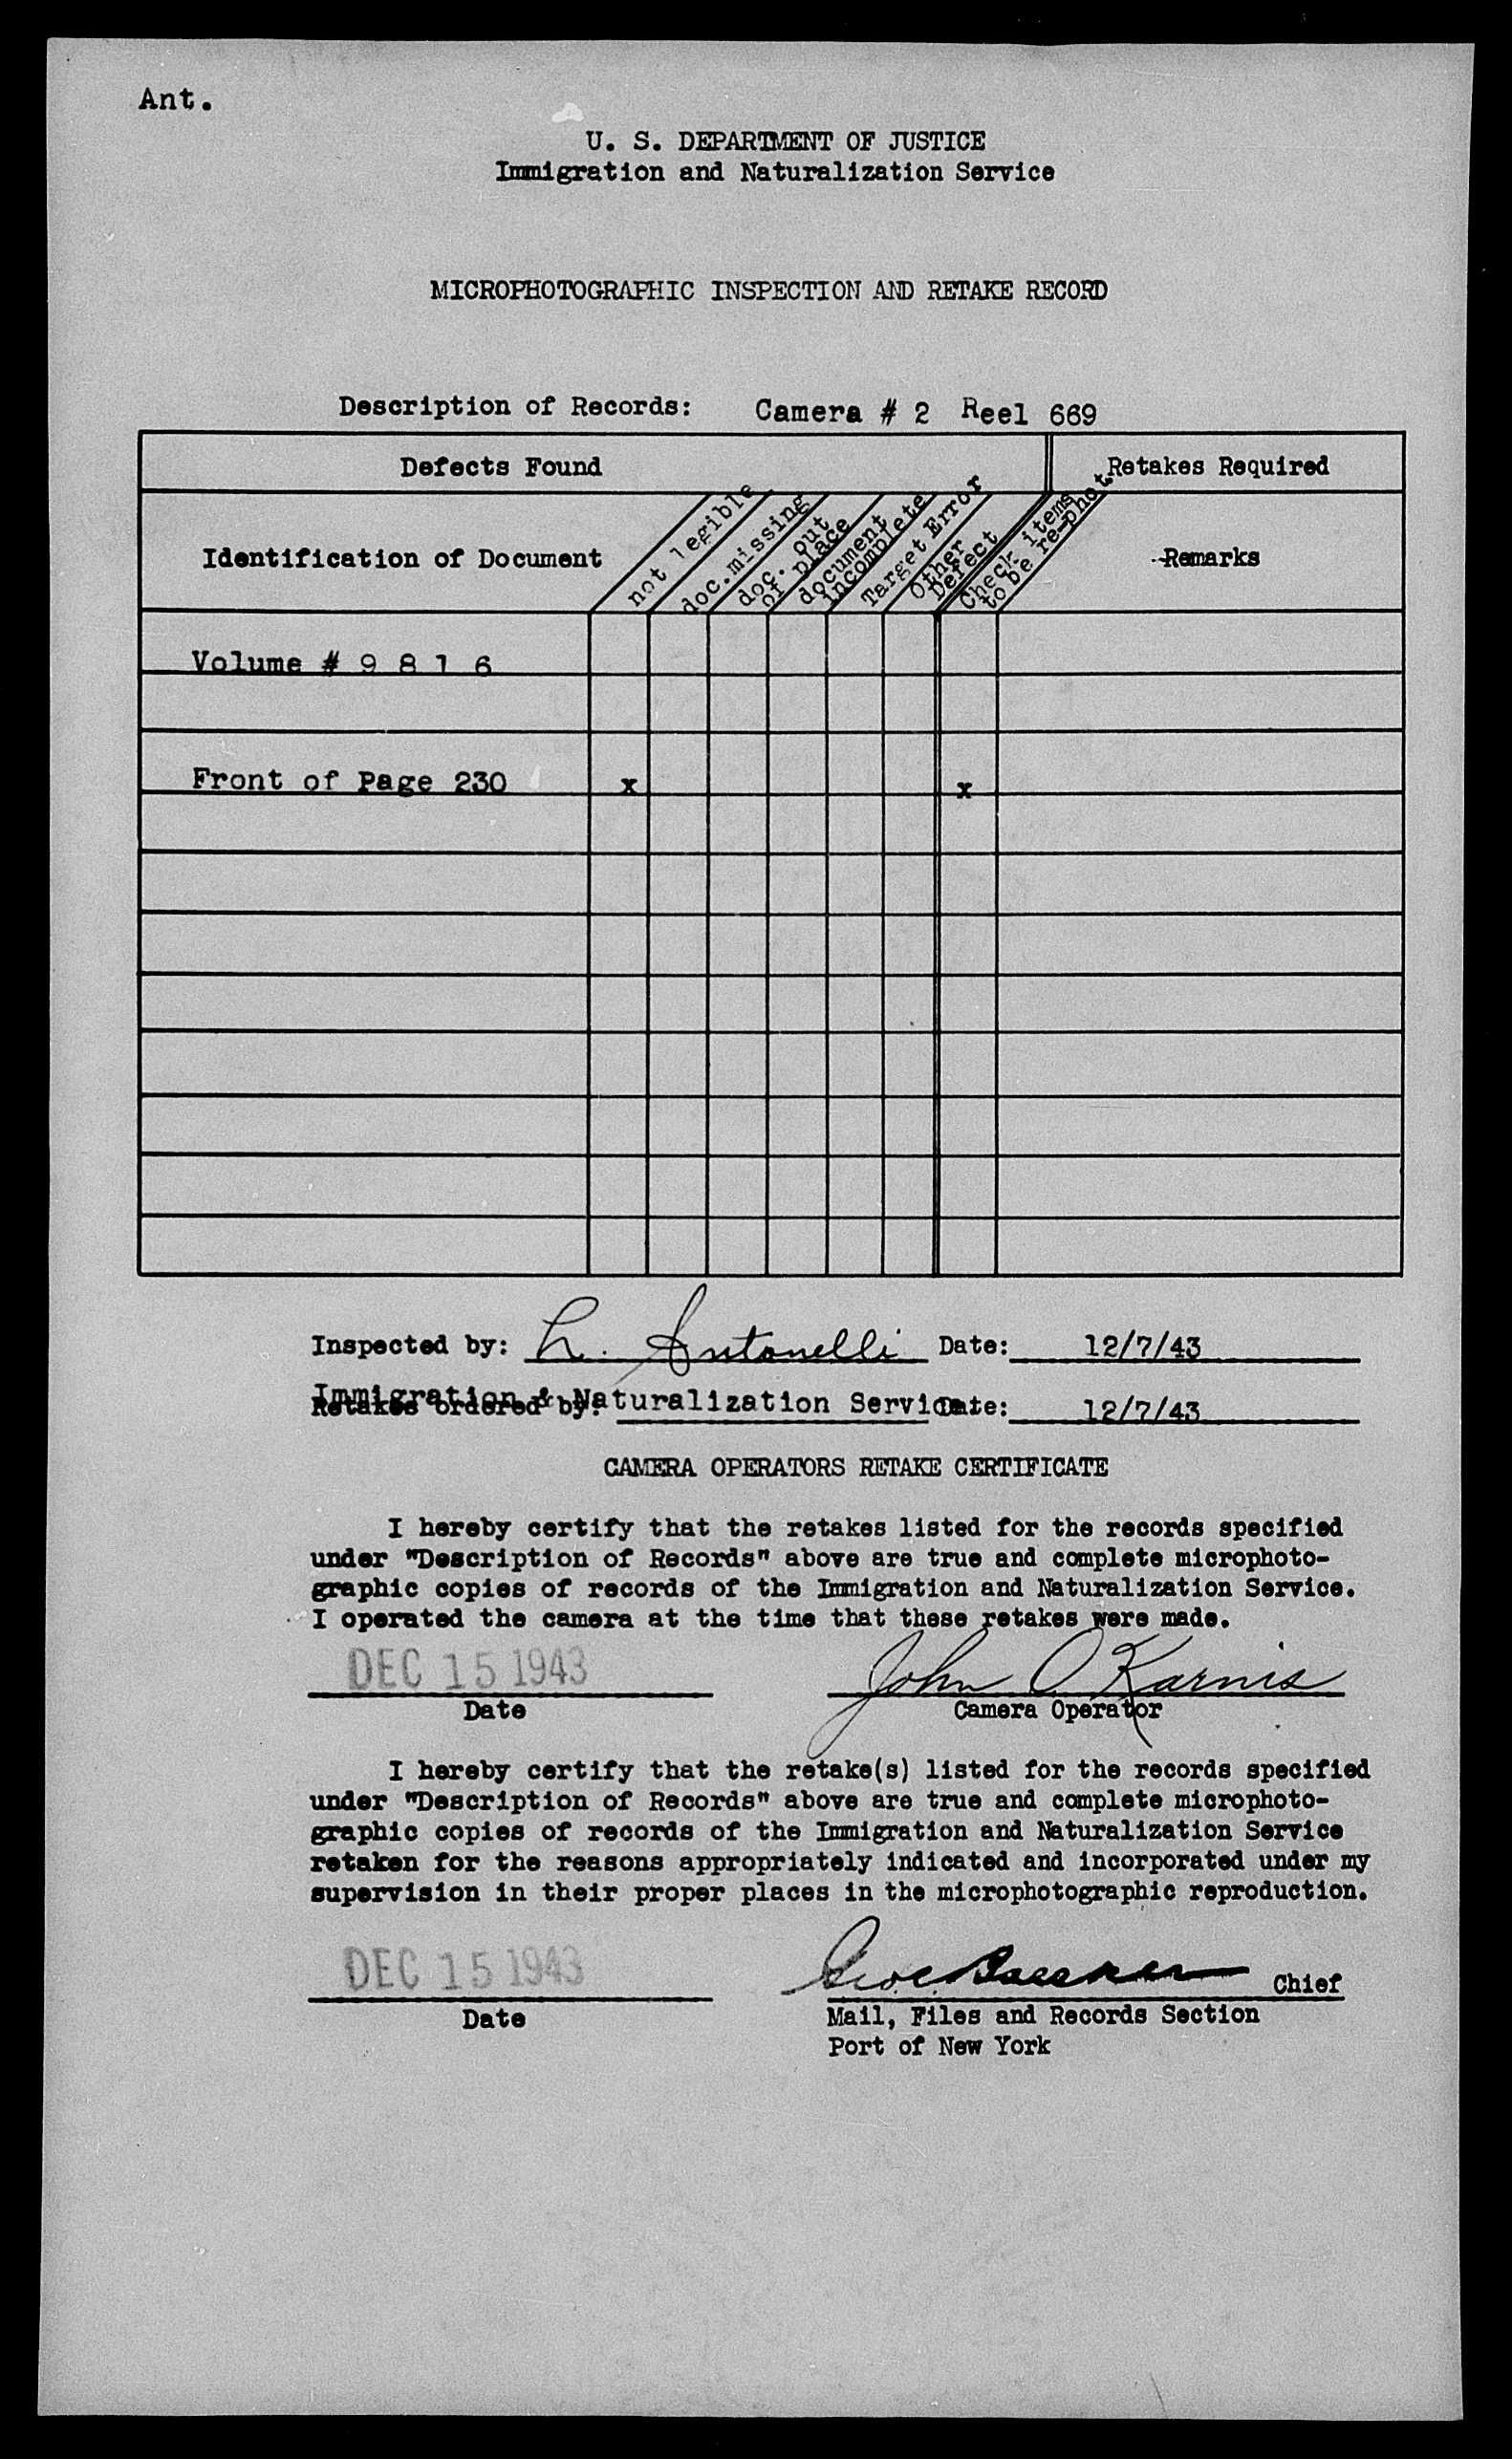 Ant.
U. S. DEPARTMENT OF JUSTICE
Immigration and Naturalization Service
MICROPHOTOGRAPHIC INSPECTION AND RETAKE RECORD
Description of Records: Camera # 2 Reel 669
Defects Found
Retakes Required
Identification of Document
not legible
doc.missing
doc. out
of place
document
incomplete
Target Error
Other
Defect
Check items
to be re-phot.
Remarks
Volume # 9 8 1 6
Front of Page 230 x x
Inspected by: L. Antonelli Date: 12/7/43
Immigration & Naturalization Service
Retakes ordered by: Date: 12/7/43
CAMERA OPERATORS RETAKE CERTIFICATE
I hereby certify that the retakes listed for the records specified
under "Description of Records" above are true and complete microphoto-
graphic copies of records of the Immigration and Naturalization Service.
I operated the camera at the time that these retakes were made.
DEC 15 1943 John O Karnis
Date Camera Operator
I hereby certify that the retake(s) listed for the records specified
under "Description of Records" above are true and complete microphoto-
graphic copies of records of the Immigration and Naturalization Service
retaken for the reasons appropriately indicated and incorporated under my
supervision in their proper places in the microphotographic reproduction.
DEC 15 1943 Chief
Date Mail, Files and Records Section
Port of New York